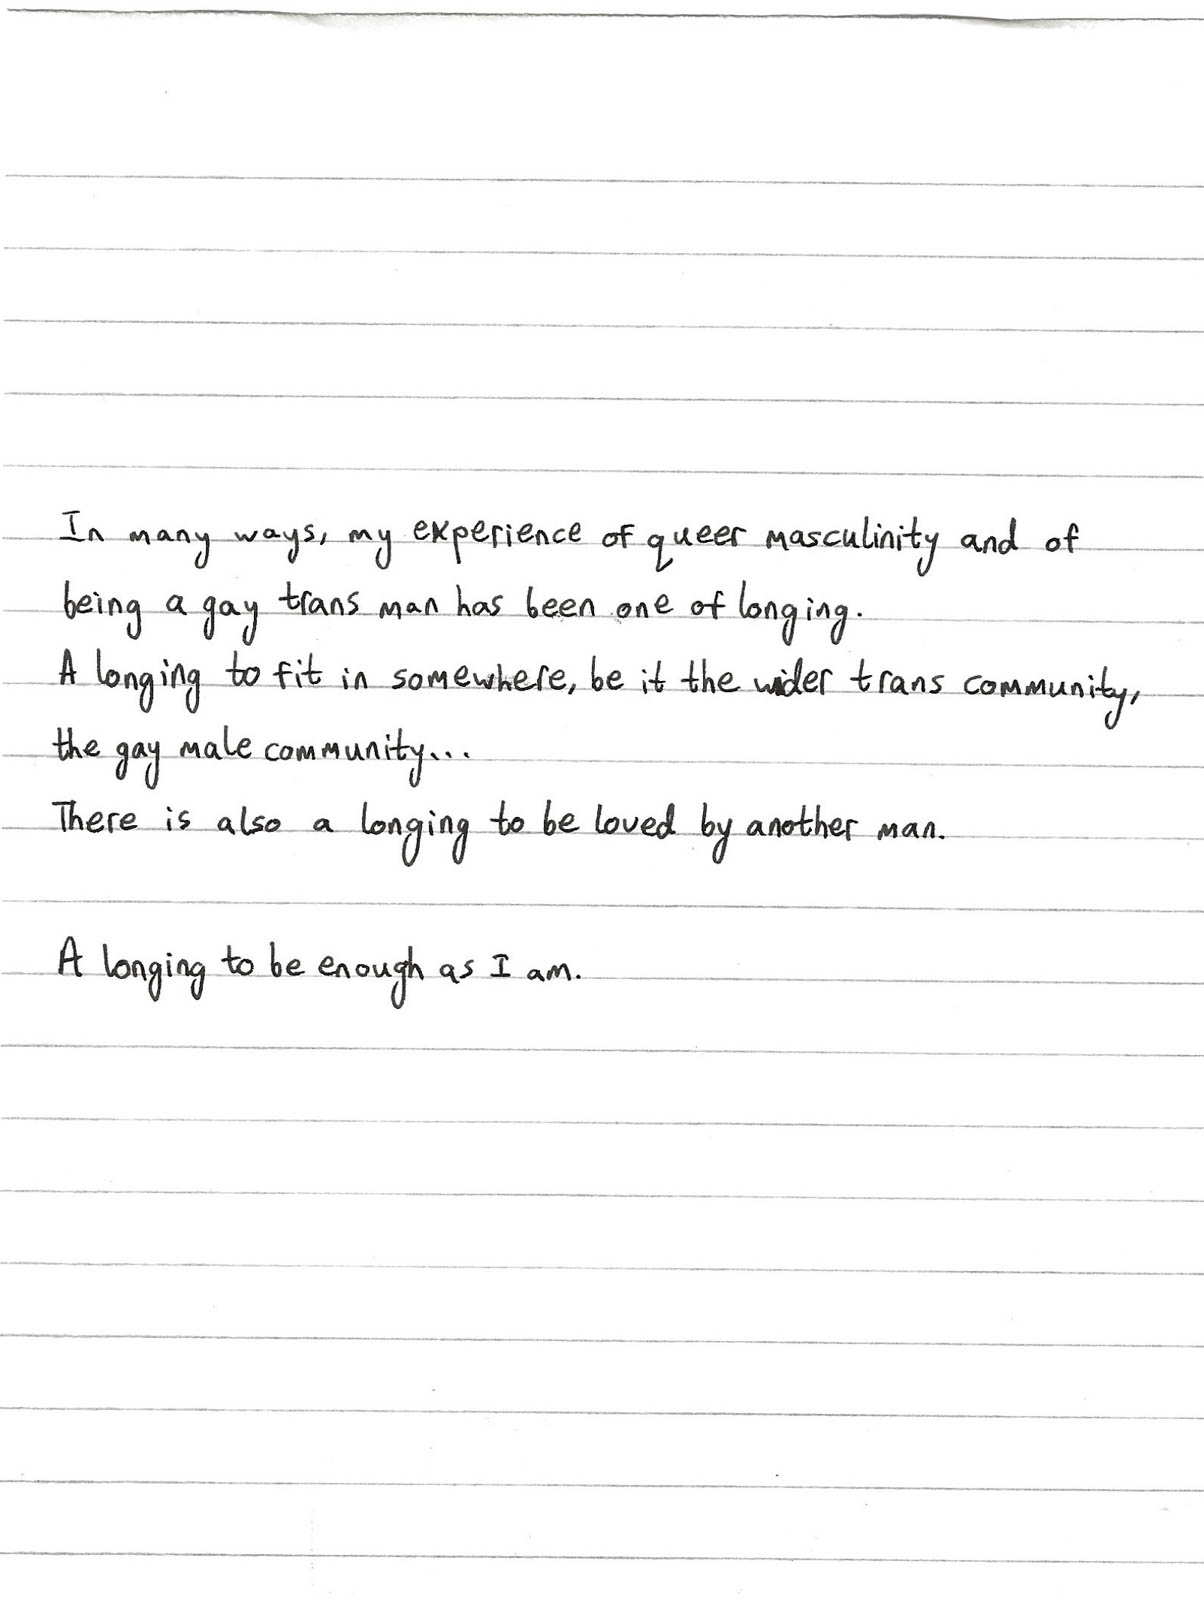 In many ways, my experience of queer masculinity and of
being a gay trans man has been one of longing.
A longing to fit in somewhere, be it the wider trans community,
the gay male community...
There is also a longing to be loved by another man.
A longing to be enough as I am.